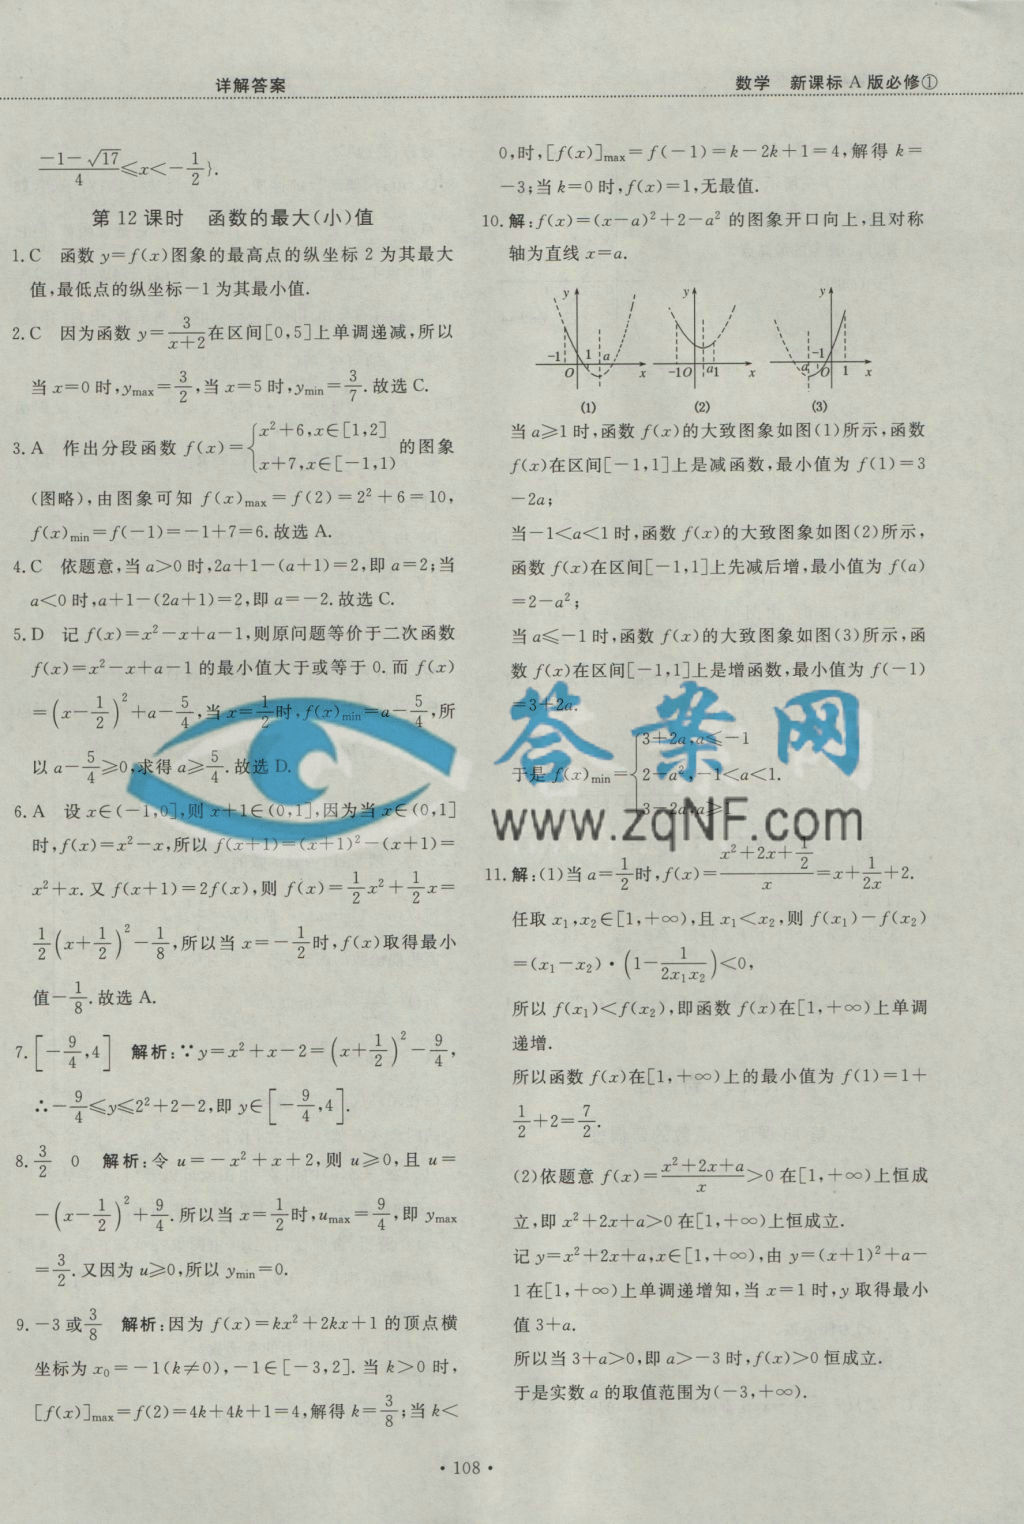 详解答案
数学 新课标A版必修①
(-1-√17)/4≤x<-1/2}.
第12课时 函数的最大(小)值
1. C 函数 y=f(x)图象的最高点的纵坐标 2 为其最大
值,最低点的纵坐标-1为其最小值.
2. C 因为函数 y=3/(x+2)在区间[0,5]上单调递减,所以
当 x=0 时,ymax=3/2,当 x=5 时,ymin=3/7.故选 C.
3. A 作出分段函数 f(x)={x²+6,x∈[1,2]
x+7,x∈[-1,1) 的图象
(图略),由图象可知 f(x)max=f(2)=2²+6=10,
f(x)min=f(-1)=-1+7=6.故选 A.
4. C 依题意,当 a>0 时,2a+1-(a+1)=2,即 a=2;当
a<0 时,a+1-(2a+1)=2,即 a=-2.故选 C.
5. D 记 f(x)=x²-x+a-1,则原问题等价于二次函数
f(x)=x²-x+a-1 的最小值大于或等于 0.而 f(x)
=(x-1/2)²+a-5/4,当 x=1/2时,f(x)min=a-5/4,所
以 a-5/4≥0,求得 a≥5/4.故选 D.
6. A 设 x∈(-1,0],则 x+1∈(0,1],因为当 x∈(0,1]
时,f(x)=x²-x,所以 f(x+1)=(x+1)²-(x+1)=
x²+x.又 f(x+1)=2f(x),则 f(x)=1/2x²+1/2x=
1/2(x+1/2)²-1/8,所以当 x=-1/2时,f(x)取得最小
值-1/8.故选 A.
7. [-9/4,4] 解析:∵y=x²+x-2=(x+1/2)²-9/4,
∴-9/4≤y≤2²+2-2,即 y∈[-9/4,4].
8. 3/2 0 解析:令 u=-x²+x+2,则 u≥0,且 u=
-(x-1/2)²+9/4.所以当 x=1/2时,umax=9/4,即 ymax
=3/2.又因为 u≥0,所以 ymin=0.
9. -3 或3/8 解析:因为 f(x)=kx²+2kx+1 的顶点横
坐标为 x₀=-1(k≠0),-1∈[-3,2].当 k>0 时,
[f(x)]max=f(2)=4k+4k+1=4,解得 k=3/8;当 k<
0,时,[f(x)]max=f(-1)=k-2k+1=4,解得 k=
-3;当 k=0 时,f(x)=1,无最值.
10. 解:f(x)=(x-a)²+2-a² 的图象开口向上,且对称
轴为直线 x=a.
y y y
-1 1 a O x
-1 O a 1 x
a -1 O 1 x
(1) (2) (3)
当 a≥1 时,函数 f(x)的大致图象如图(1)所示,函数
f(x)在区间[-1,1]上是减函数,最小值为 f(1)=3
-2a;
当-1<a<1 时,函数 f(x)的大致图象如图(2)所示,
函数 f(x)在区间[-1,1]上先减后增,最小值为 f(a)
=2-a²;
当 a≤-1 时,函数 f(x)的大致图象如图(3)所示,函
数 f(x)在区间[-1,1]上是增函数,最小值为 f(-1)
=3+2a.
3+2a,a≤-1
于是 f(x)min={2-a²,-1<a<1.
3-2a,a≥
答案网
www.zqNF.com
11. 解:(1)当 a=1/2时,f(x)=(x²+2x+1/2)/x=x+1/(2x)+2.
任取 x₁,x₂∈[1,+∞),且 x₁<x₂,则 f(x₁)-f(x₂)
=(x₁-x₂)·(1-1/(2x₁x₂))<0,
所以 f(x₁)<f(x₂),即函数 f(x)在[1,+∞)上单调
递增.
所以函数 f(x)在[1,+∞)上的最小值为 f(1)=1+
1/2+2=7/2.
(2)依题意 f(x)=(x²+2x+a)/x>0 在[1,+∞)上恒成
立,即 x²+2x+a>0 在[1,+∞)上恒成立.
记 y=x²+2x+a,x∈[1,+∞),由 y=(x+1)²+a-
1 在[1,+∞)上单调递增知,当 x=1 时,y 取得最小
值 3+a.
所以当 3+a>0,即 a>-3 时,f(x)>0 恒成立.
于是实数 a 的取值范围为(-3,+∞).
·108·